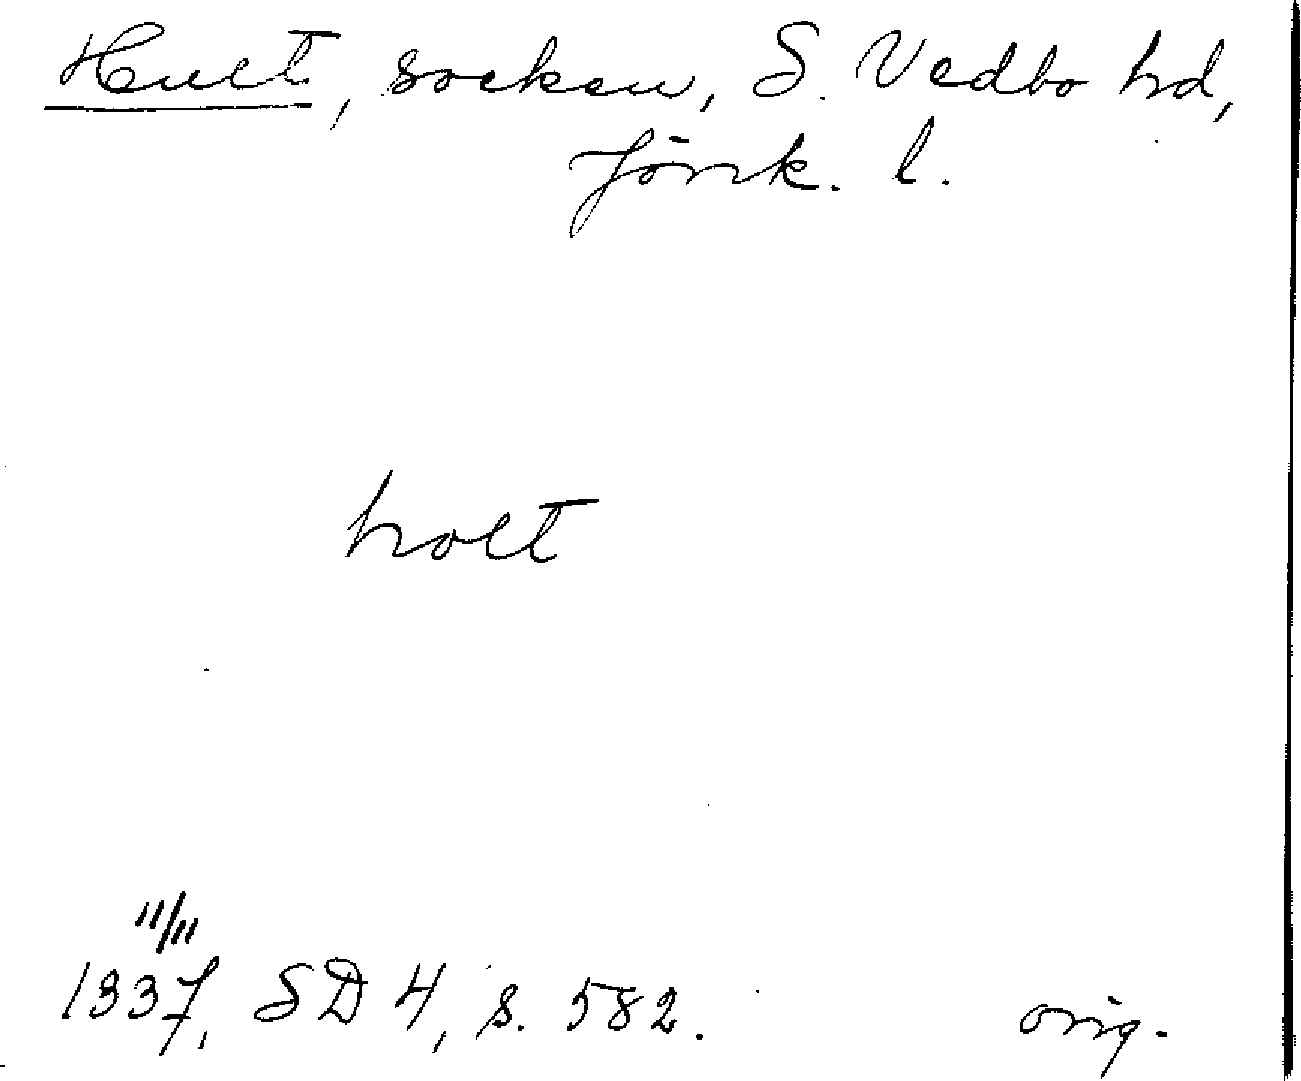 Hult, socken, S. Vedbo hd,
Jönk. l.
holt
11/11
1337, SD 4, s. 582.
orig.